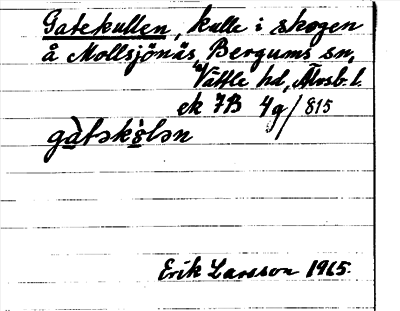 Gatekullen, kulle i skogen
å Mollsjönäs Bergums sn,
Vättle hd, Älvsb. l.
ek 7B 4g/815
gàtək{o}lən
Erik Larsson 1965.